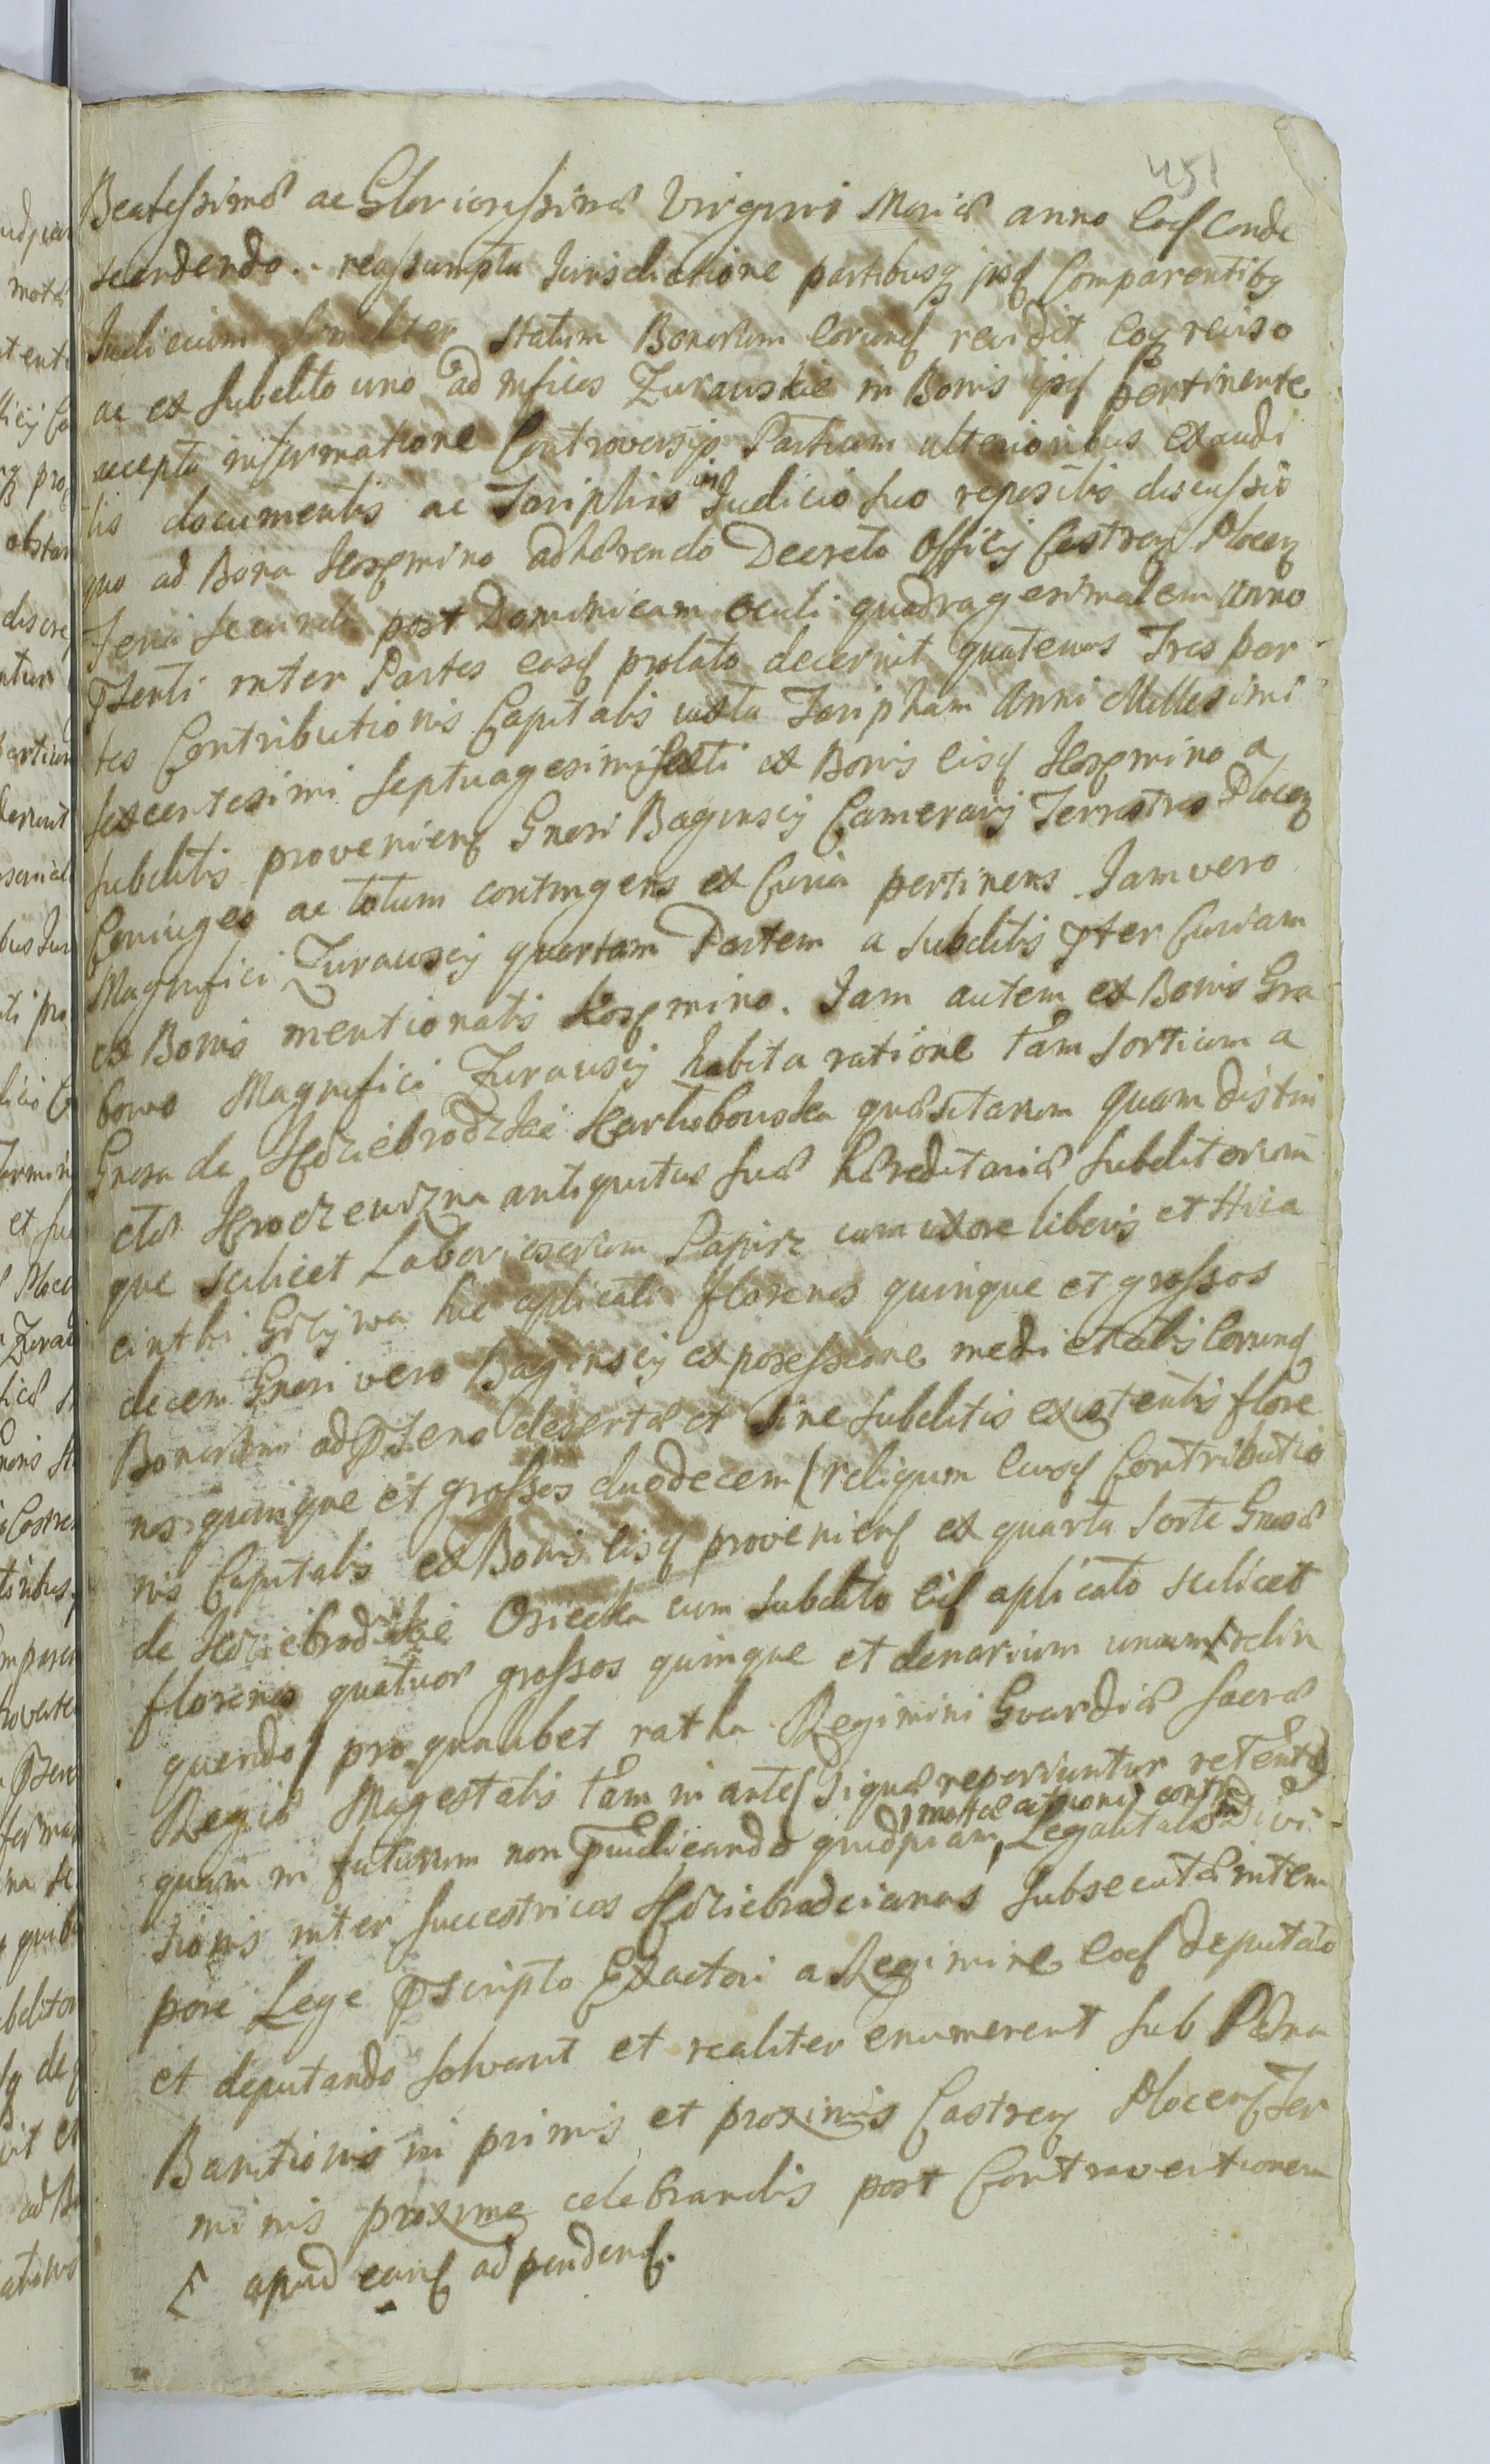 451
Beatissimæ ac Gloriosissimæ Virginis Mariæ anno eod Conde
scendendo. reassumpta Jurisdictione partibusq ijsd Comparentibq
Judicium similiter statum Bonorum eorund revidit eoq reviso
ac ex subdito uno ad mficos Zurawskie in Bonis ijsd pertinente
accepta informatione Controversijs Partium ulterioribus exaudi
tis documentis ac Tariphis in Judicio suo repositis discussis
quo ad Bona Kosmino adhærendo Decreto Officij Castren Plocen
Feria secunda post Dominicam Oculi quadragesimalem anno
pñsenti inter Partes easd prolato decernit quatenus Tres par
tes Contributionis Capitalis iuxta Taripham Anni Millesimi
sexcentesimi septuagesimi sexti ex Bonis eisd Kosmino a
subditis provenien Gnosi Baginscij Camerarij Terrestres Plocen
Coniuges ac totum contingens ex Curia pertinens. Jam vero
Magnifici Zurawscij quartam Partem a subditis pter Curiam
ex Bonis mentionatis Kosmino. Jam autem ex Bonis Gra
bowo Magnifici Zurawscij habita ratione tam sortium a
Gnosa de Kdziebrodzkie Karwowska quæsitarum quam distin
ctæ Kroczewizna antiquitus suæ hæreditariæ subditorum
que scilicet Laboriosorum Papirz cum uxore liberis et Hiia
cinthi Grzywa huc aplicati florenos quinque et grossos
decem Gnosi vero Baginscij ex possessione medietatis eorund
Bonorum ad pñsens desertæ et sine subditis existentis flore
nos quinque et grossos duodecem (reliquum eiusd Contributio
nis Capitalis ex Bonis eisd provenien ex quarta sorte Gnosæ
de Kdziebrodzkie Osiecka cum subdito eid aplicato scilicet
florenos quatuor grossos quinque et denarium unum relin
quendo) pro qualibet ratha Regimini Gvardiæ Sacræ
Regiæ Magestatis tam in ante (si quæ reperiuntur retentæ)
quam in futurum non pñiudicando quidpiam Legalitati Divi
motæ actionis
sionis inter successtrices Kdziebrodcianas subsecutæ in tem
pore Lege pscripto Exactori a Regimine eod deputato
et deputando solvant et realiter enumerent sub Pæna
Banitionis in primis et proximis Castren Plocen Ter
minis proxime celebrandis post Contraventionem
apud eand ad penden.